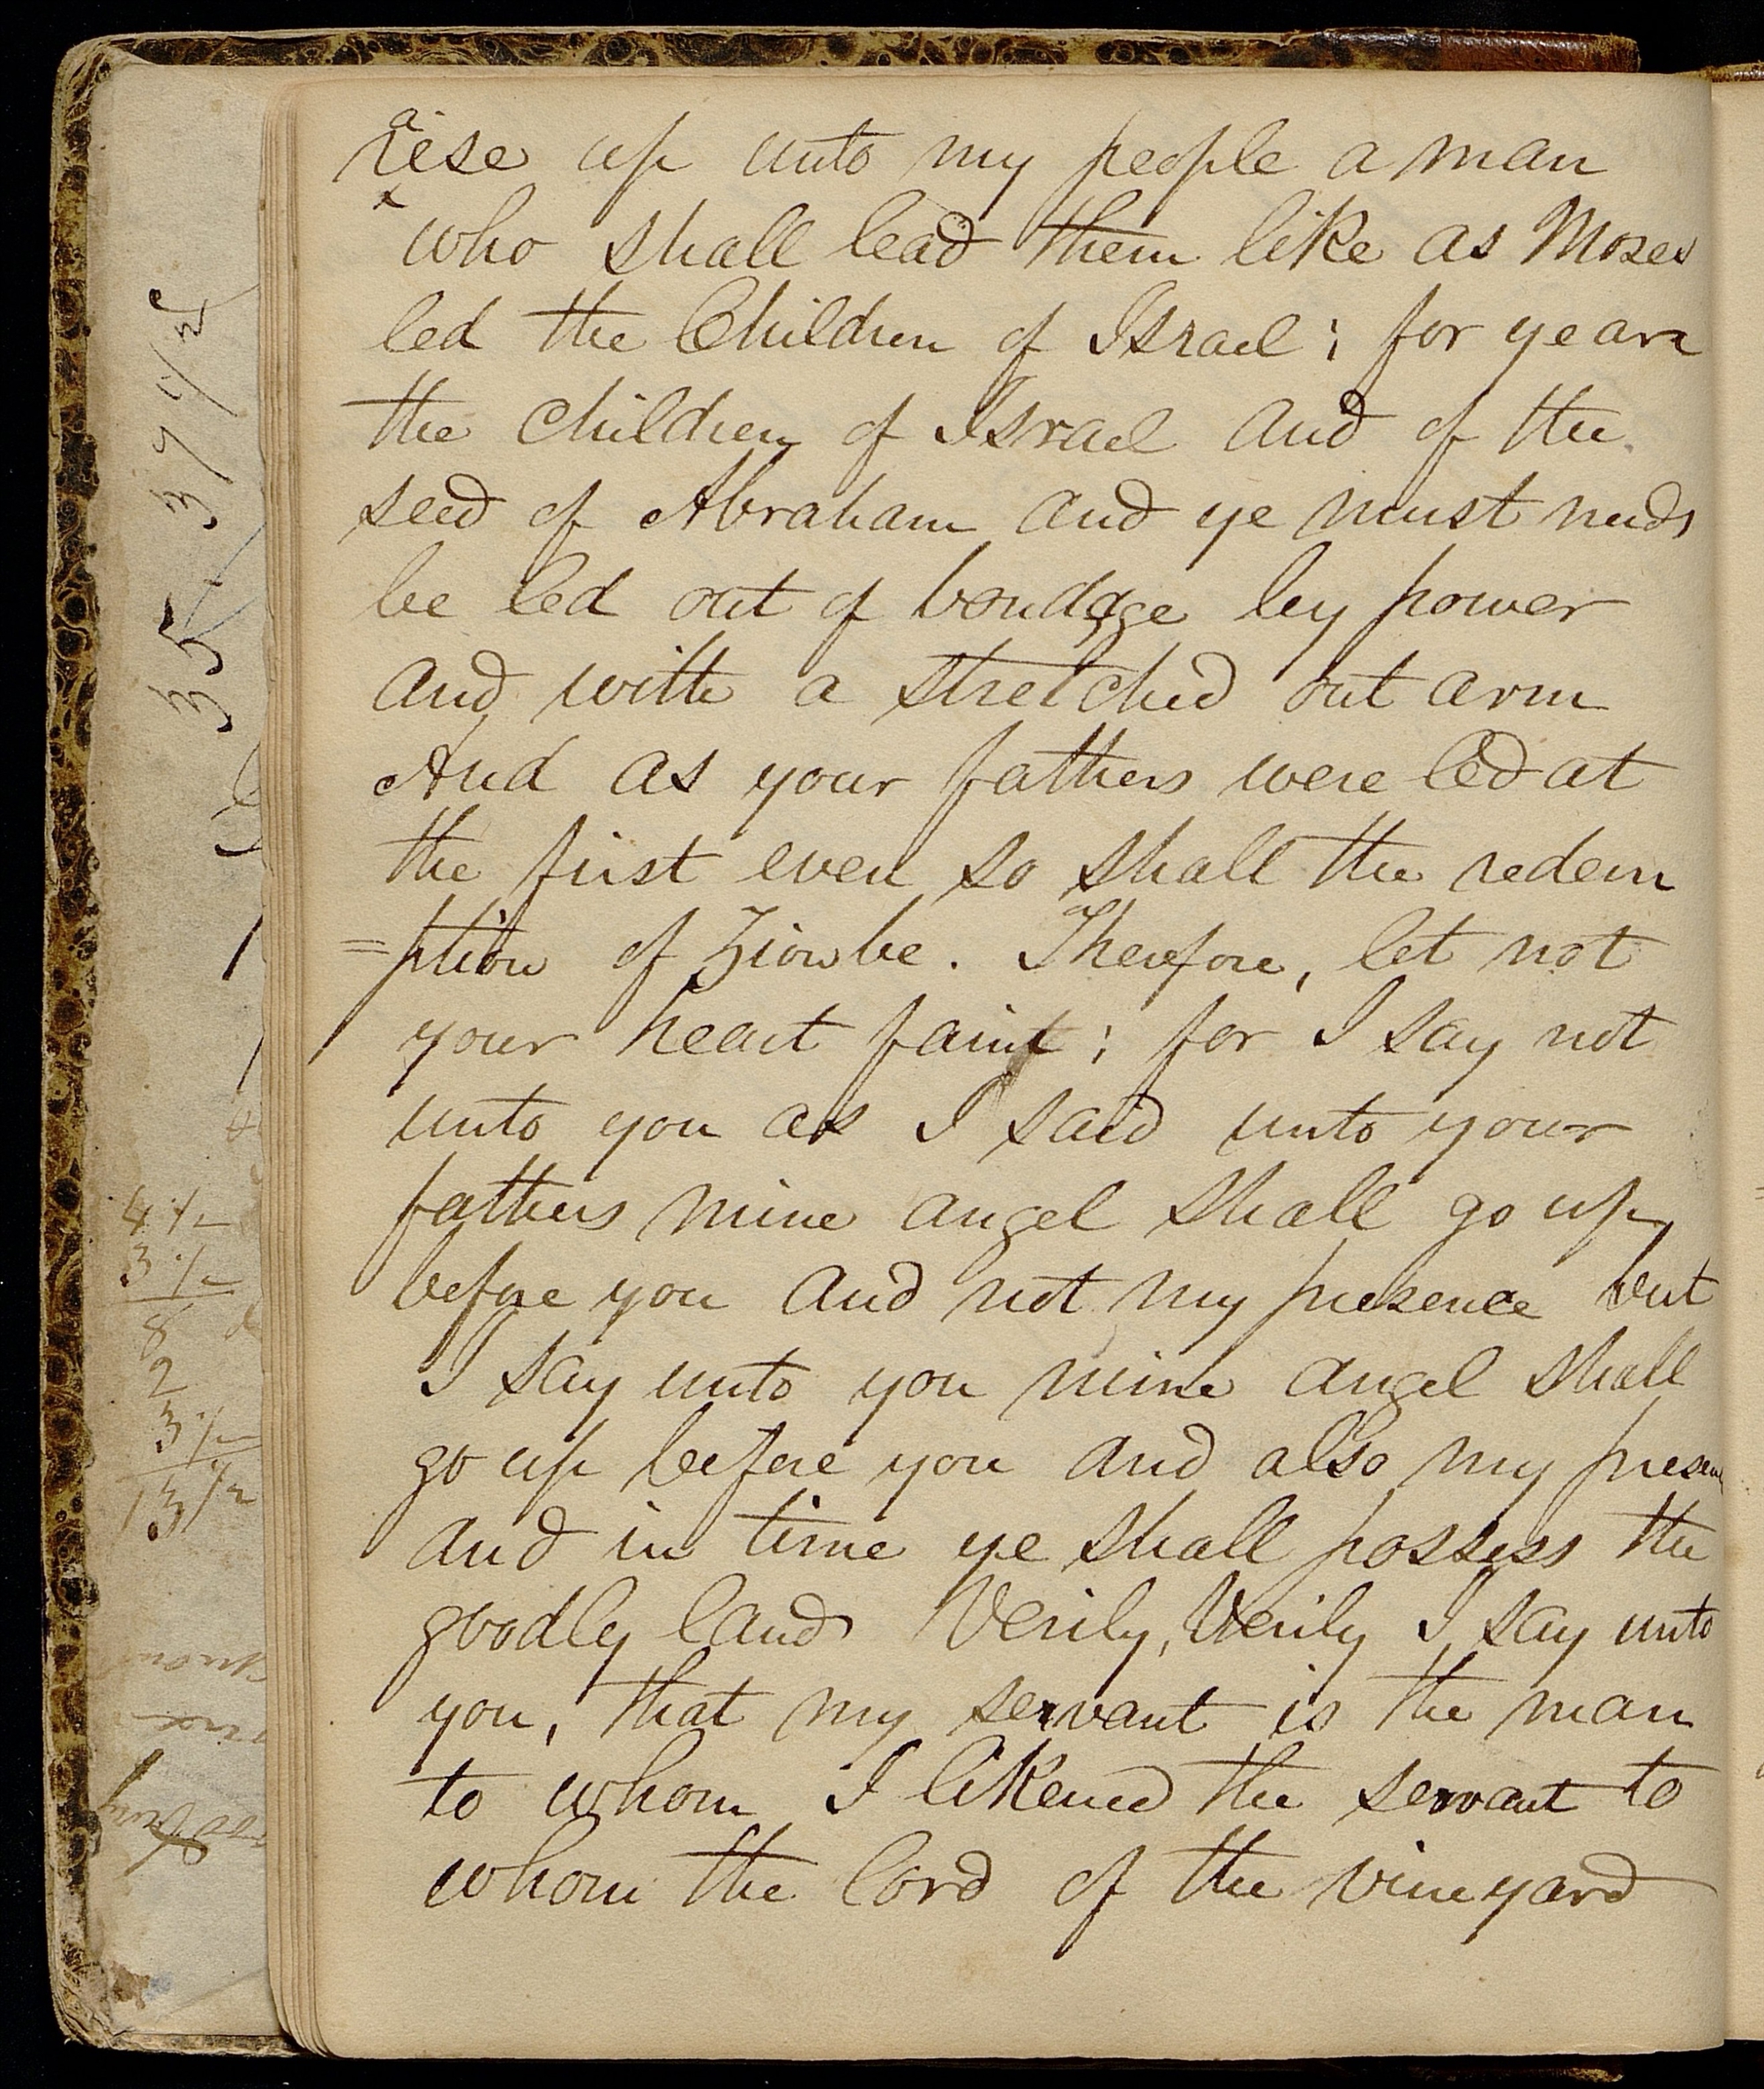 raise up unto my people a man
who shall lead them like as Moses
led the Children of Israel; for ye are
the children of Israel and of the
seed of Abraham and ye must needs
be led out of bondage by power
and with a stretched out arm
And as your fathers were led at
the first even so shall the redem
=ption of Zion be. Therefore, let not
your heart faint; for I say not
unto you as I said unto your
fathers mine angel shall go up
before you and not my presence but
I say unto you mine angel shall
go up before you and also my presenc
and in time ye shall possess the
goodly land Verily, Verily I say unto
you, that my servant is the man
to whom I likened the servant to
whom the lord of the vineyard
35
37 1/2
4 1/2
3 1/2
8
2
3 1/2
13 1/2